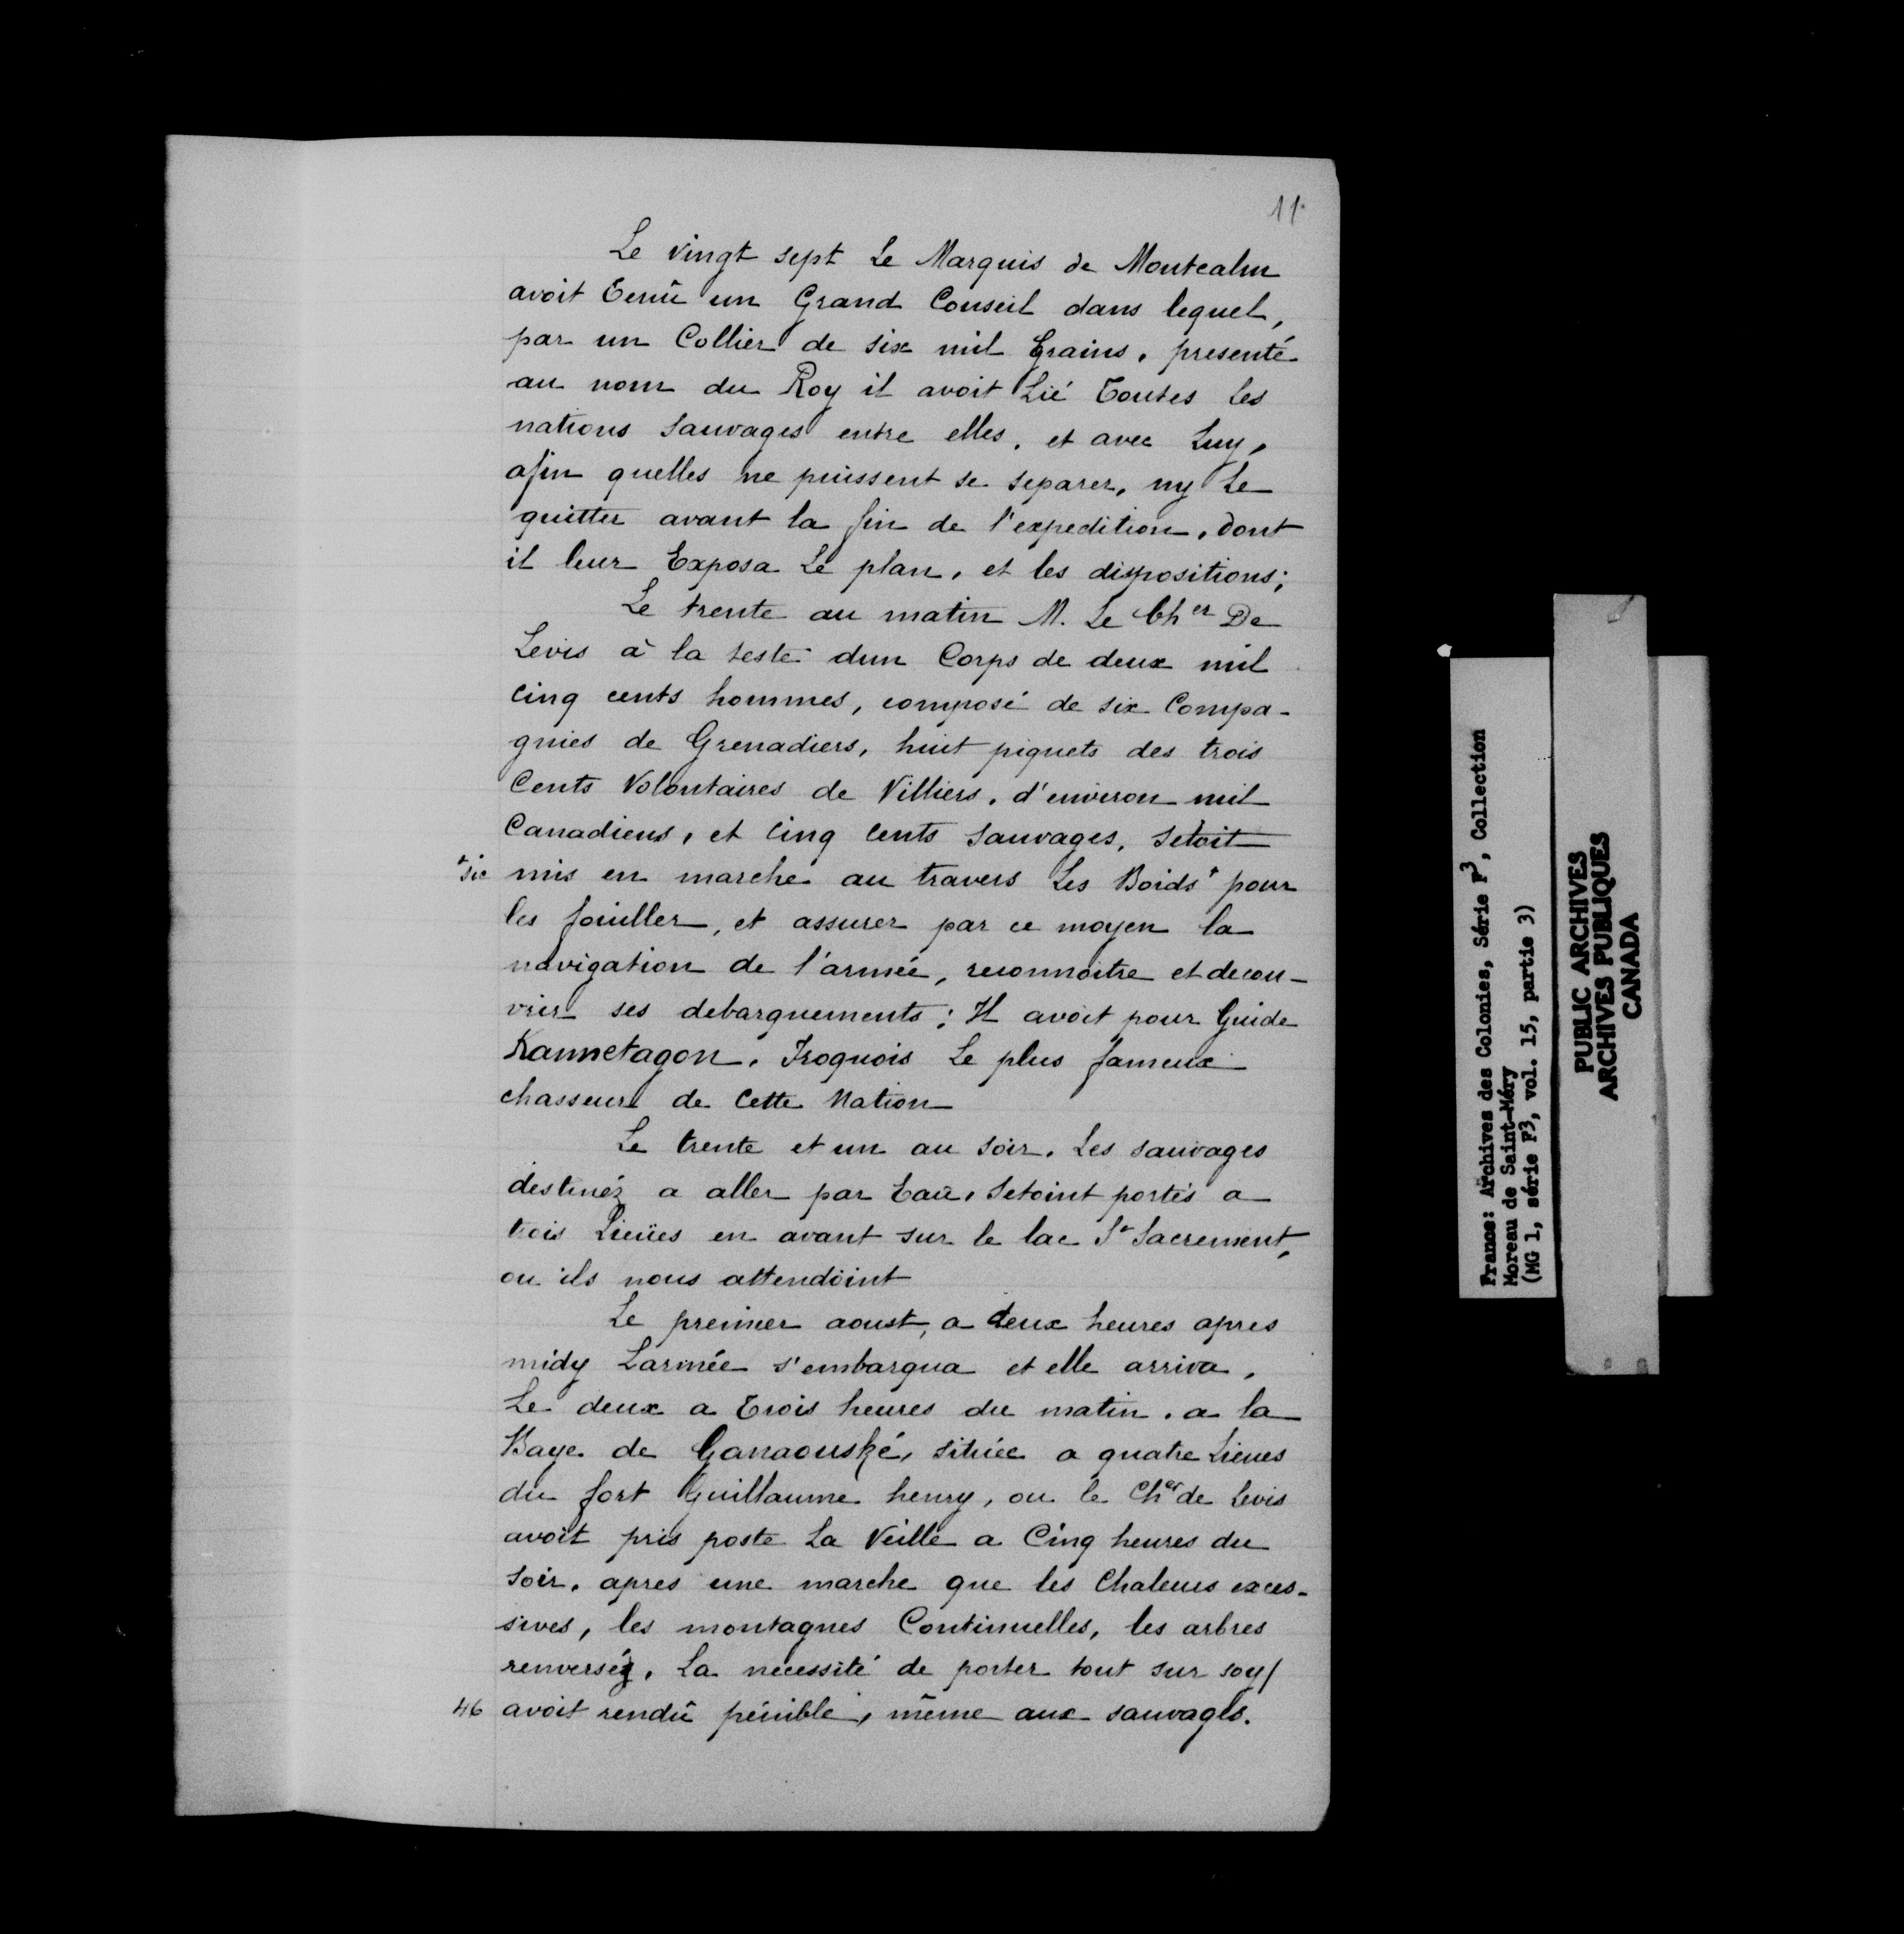 11.
Le vingt sept Le Marquis de Montcalm
avoit Tenû un Grand Conseil dans lequel,
par un Collier de six mil Grains, presenté
au nom du Roy il avoit Lié Toutes les
nations Sauvages entre elles, et avec Luy,
afin quelles ne puissent se separer, ny Le
quitter avant la fin de l'expedition, dont
il leur Exposa Le plan, et les dispositions;
Le trente au matin M. Le Cher De
Levis à la teste dun Corps de deux mil
cinq cents hommes, composé de six Compa-
gnies de Grenadiers, huit piquets des trois
Cents Volontaires de Villiers, d'environ mil
Canadiens, et Cinq Cents Sauvages, Setoit
+sic mis en marche au travers Les Boids+ pour
les fouiller, et assurer par ce moyen la
navigation de l'armée, reconnoitre et decou-
vrir ses debarquements; Il avoit pour Guide
Kannetagon, Iroquois Le plus fameux
chasseur de Cette Nation
Le trente et un au Soir, Les sauvages
destinéz a aller par Eaü, Setoint portés a
trois Lieües en avant sur le lac St Sacrement,
ou ils nous attendoint
Le premier aoust, a deux heures apres
midy Larmée s'embarqua et elle arriva,
Le deux a Trois heures du matin, a la
Baye de Ganaouské, située a quatre Lieues
du fort Guillaume henry, ou le Cher de Levis
avoit pris poste La Veille a Cinq heures du
Soir, apres une marche que les Chaleurs exces-
sives, les montagnes Continuelles, les arbres
renverséz, La necessité de porter tout sur soy/
46 avoit rendû pénible, même aux sauvages.
France: Archives des Colonies, Série F3, Collection
Moreau de Saint-Méry
(MG 1, série F3, vol. 15, partie 3)
PUBLIC ARCHIVES
ARCHIVES PUBLIQUES
CANADA